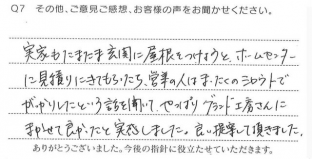 Q7 その他、ご意見ご感想、お客様の声をお聞かせください。
実家もたまたま玄関に屋根をつけようと、ホームセンター
に見積りにきてもらいたら、営業の人はまったくのシロウトで
がっかりしたという話を聞いて、やっぱりグランド工房さんに
まかせて良かったと実感しました。良い提案して頂きました。
ありがとうございました。今後の指針に役立たせていただきます。